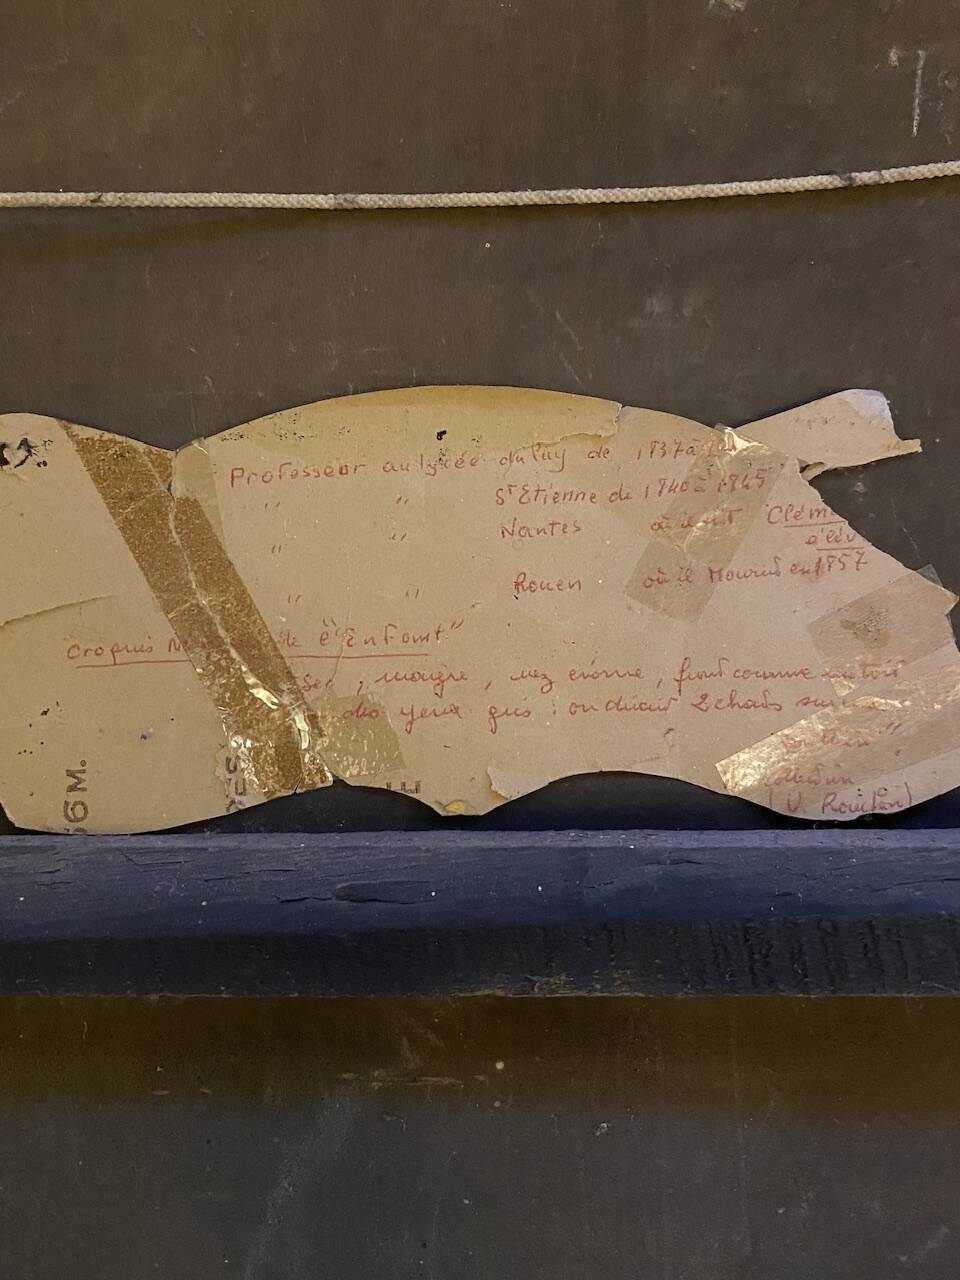 Professeur au lycée du Puy de 1837 à
" " St Etienne de 1840 à 1845
" " Nantes où il eut Clém
élèv
" " Rouen où il Mourut en 1857
Croquis de "l'Enfant"
Sec, maigre, nez énorme, front comme un toit
des yeux gris : on dirait 2 chats sur
56M.
(V. Rouchon)